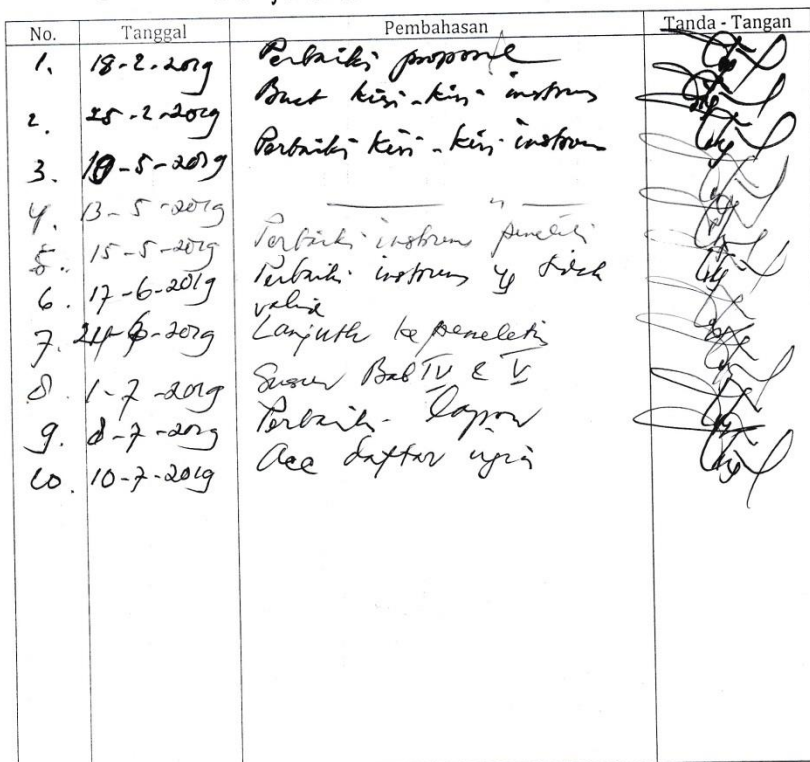 No. Tanggal Pembahasan Tanda - Tangan
1. 18-2-2019 Perbaiki propose
2. 25-2-2019 Buat kisi-kisi instrum
3. 10-5-2019 Perbaiki kisi-kisi instrum
4. 13-5-2019 — 〃 —
5. 15-5-2019 Perbaiki instrum peneliti
6. 17-6-2019 Perbaiki instrum yg tidak
valid
7. 24-6-2019 Lanjutk ke penelitin
8. 1-7-2019 Susun Bab IV & V
9. 8-7-2019 Perbaiki lapor
10. 10-7-2019 Acc daftar ujin